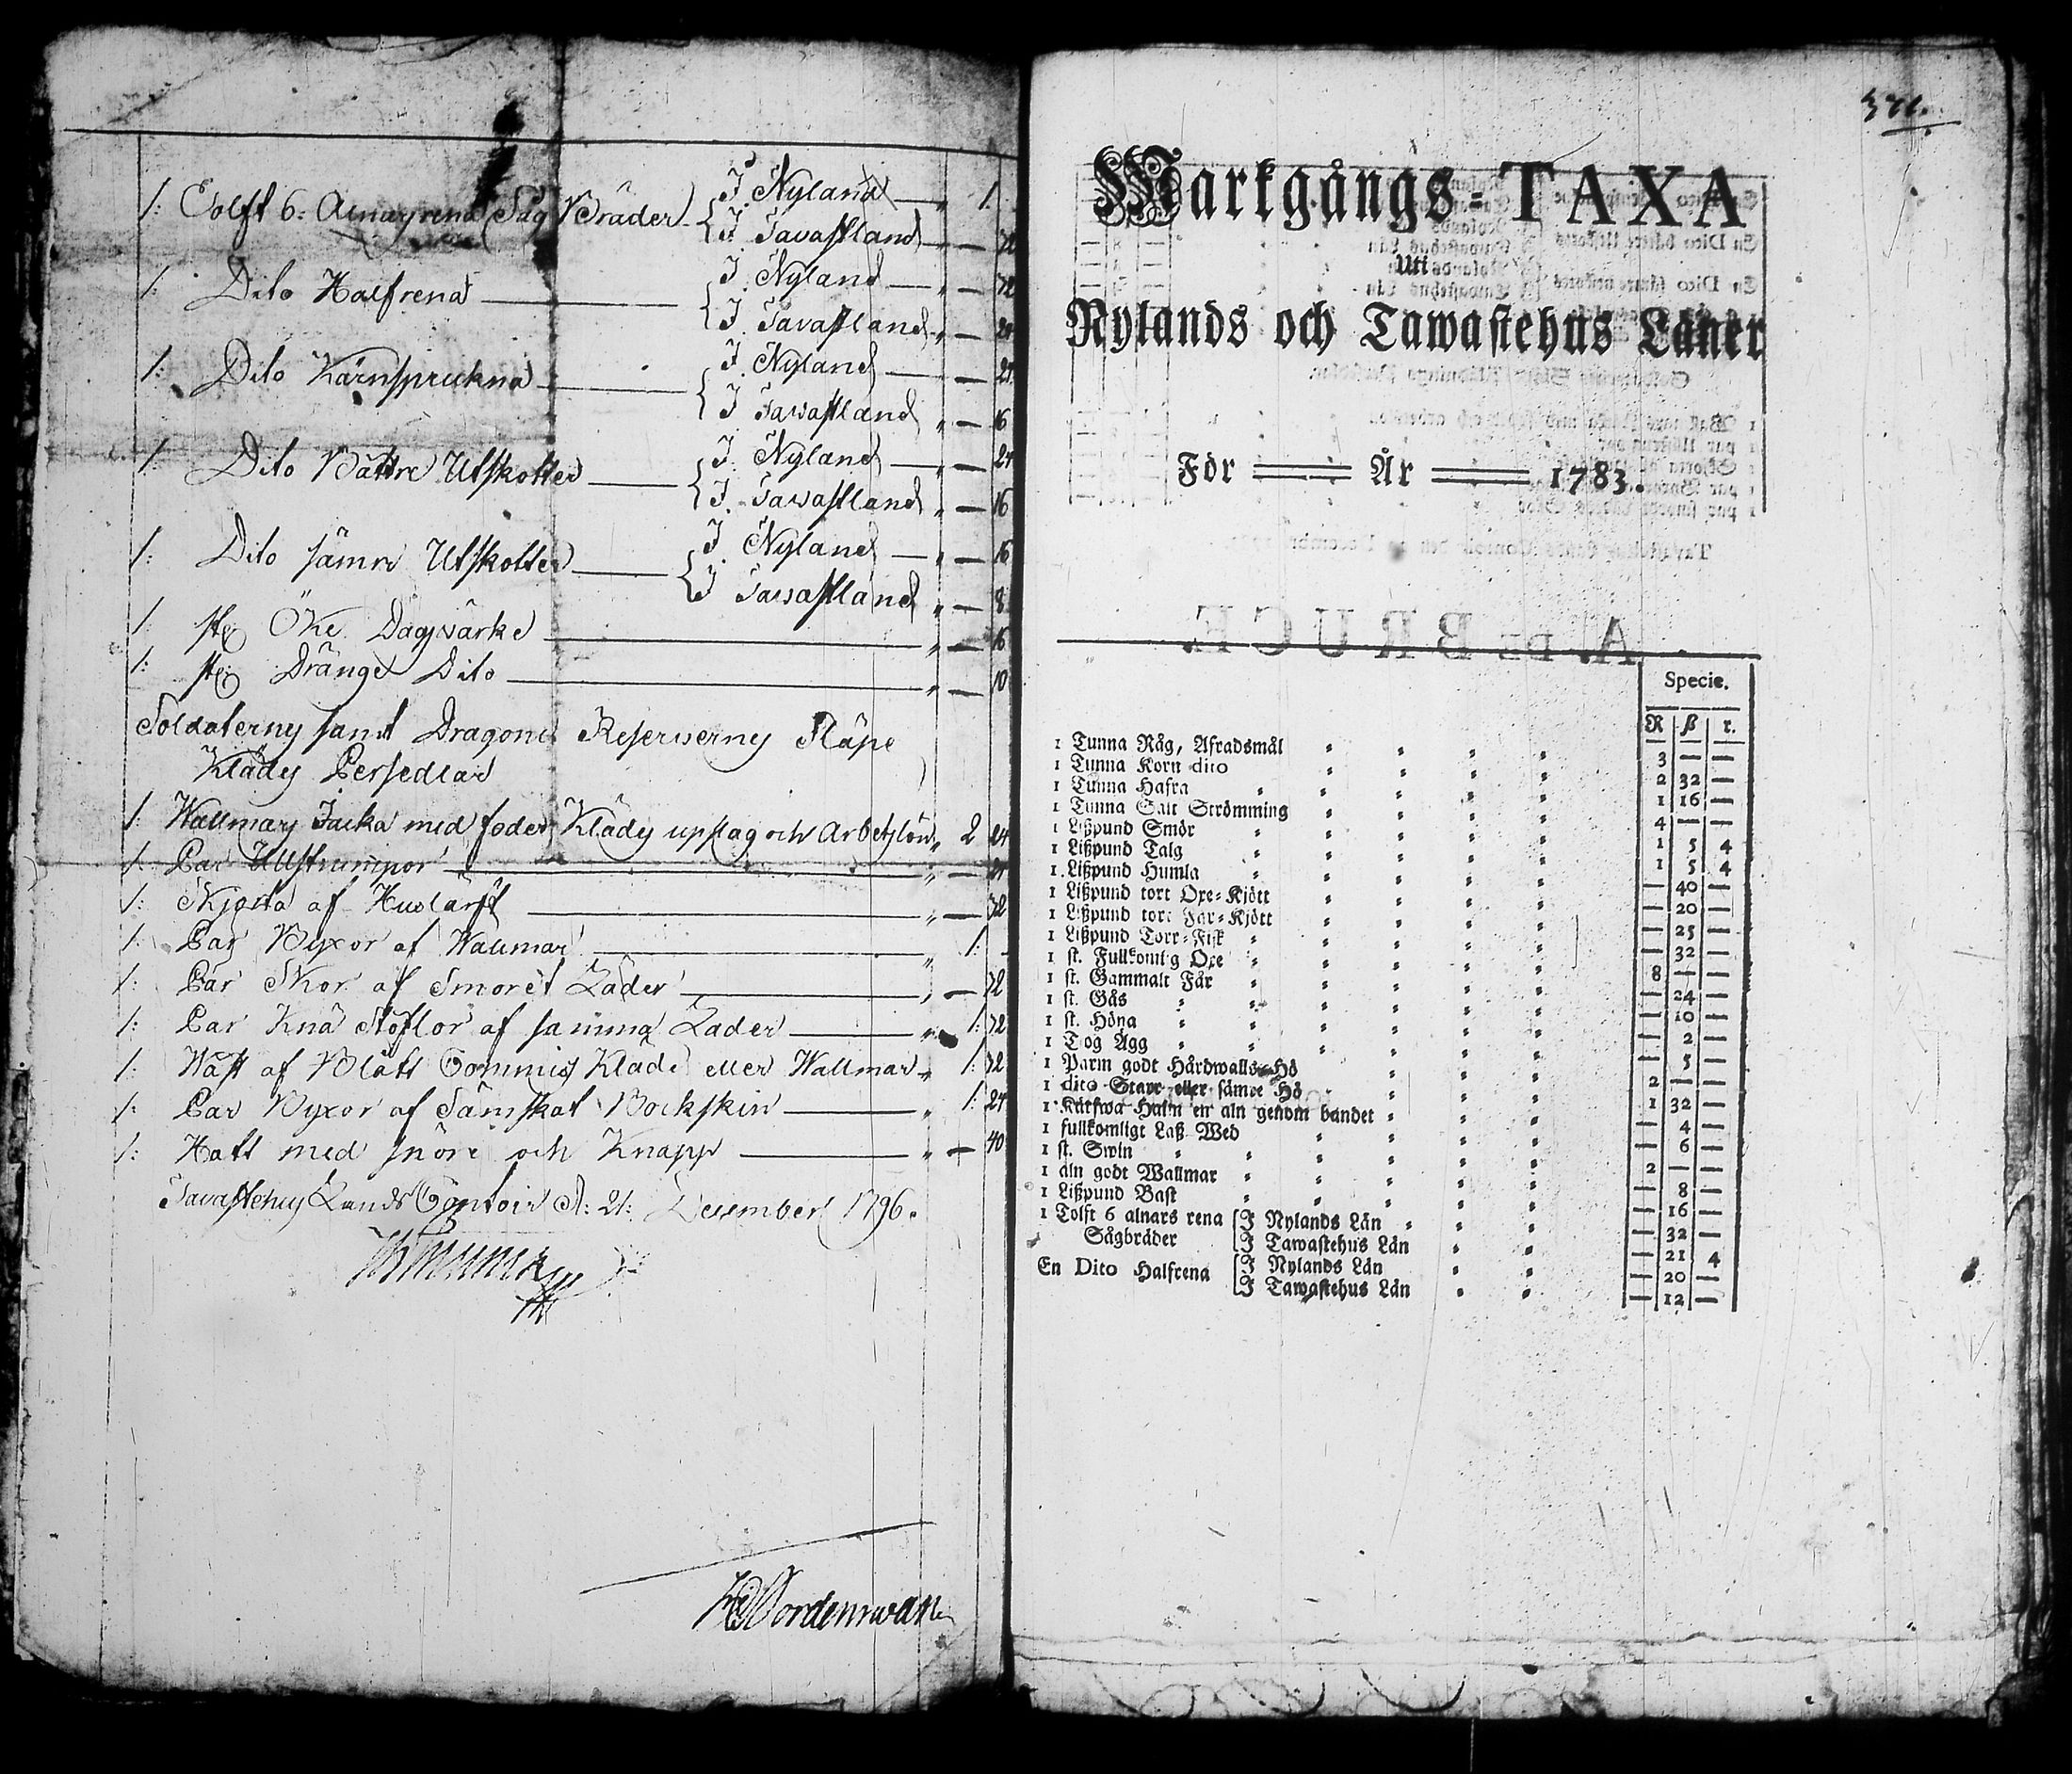 1: Tolft 6: Alnars rena Såg Bräder { I. Nyland — " 1.
I Tavastland — " — 32
1: Dito Halfrena — { I. Nyland — " — 32
I. Tavastland " — 24
1: Dito Kärnspruckna — { I. Nyland — — 24
I Tawastland " — 16
1: Dito Bättre Utskotter — { I. Nyland — " — 24
I. Tawastland " — 16
1: Dito sämre Utskotter — { I Nyland — " — 16
I Tawastland " — 8
1: st: Öke Dagsvärke — " — 16
1: st: Dränge Dito — " — 10
Soldaterns samt Dragone Reserverns Släpe
Kläds Persedlar
1: Wallmars Jacka med foder Kläds upslag och Arbetslön " 2 24
1: Par Ullstrumpor — " — 24
1: Skjorta af Huslärft — " — 32
1: Par Byxor af Wallmar — " 1: -
1: Par Skor af Smort Läder — " — 32
1: Par Knä Stöflor af samma Läder — " 1: 32
1: Wäst af Blått Commiss Kläde eller Wallmar " 1: 32
1: Par Byxor af Sämskat Bockskin — " 1: 24
1: Hatt med snöre och Knapp — " — 40
Tavastehus Lands Contoir d: 21: December 1796.
Markgångs-TAXA
Uti
Nylands och Tawastehus Läner
För — År — 1783.
Specie.
R ß r.
1 Tunna Råg, Afradsmål 3 — —
1 Tunna Korn dito 2 32 —
1 Tunna Hafra 1 16 —
1 Tunna Salt Strömming 4 — —
1 Lißpund Smör 1 5 4
1 Lißpund Talg 1 5 4
1 Lißpund Humla — 40 —
1 Lißpund tort Oxe-Kjött — 20 —
1 Lißpund tort Får-Kjött — 25 —
1 Lißpund Torr-Fisk — 32 —
1 st. Fullkomlig Oxe 8 — —
1 st. Gammalt Får — 24 —
1 st. Gås — 10 —
1 st. Höna — 2 —
1 Tog Ägg — 5 —
1 Parm godt Hårdwalls-Hö 2 — —
1 dito Starr eller sämre Hö 1 32 —
1 Kärfwa Halm en aln genom bandet — 4 —
1 fullkomligt Laß Wed — 6 —
1 st. Swin 2 — —
1 aln godt Wallmar — 8 —
1 Lißpund Bast — 16 —
1 Tolft 6 alnars rena { I Nylands Län — 32 —
Sågbräder I Tawastehus Län — 21 4
En Dito Halfrena { I Nylands Län — 20 —
I Tawastehus Län — 12 —